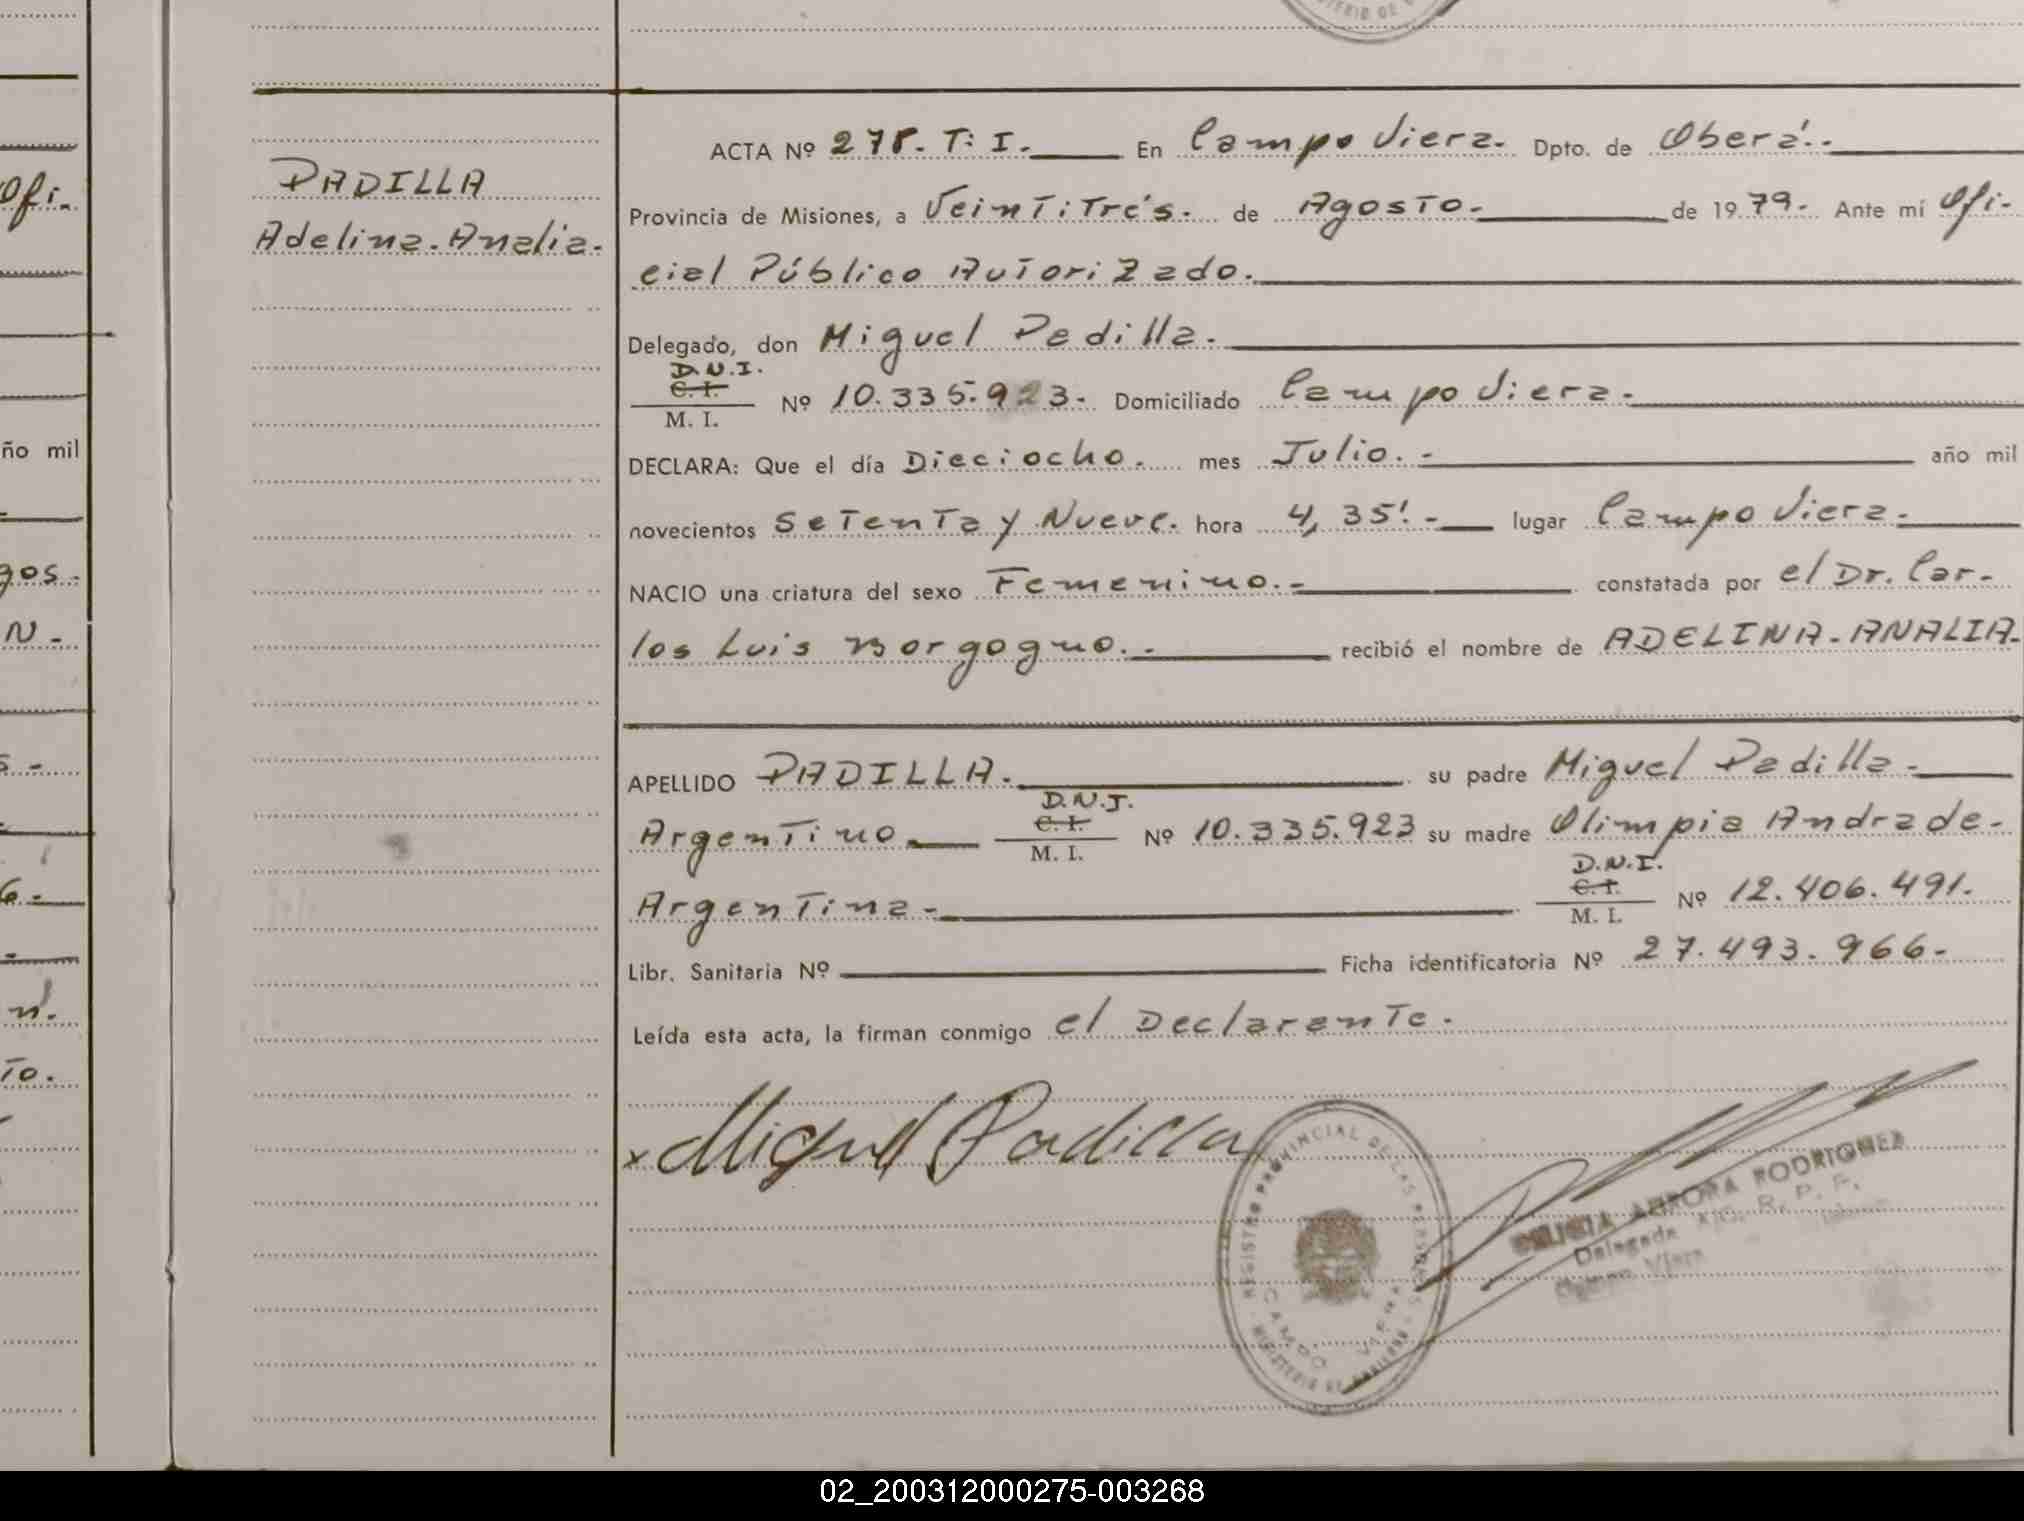 MINISTERIO DE
Ofi.
ño mil
gos.
N.-
6.-
n.
To.
PADILLA
Adelina. Analia.
ACTA Nº 278. T: I. En Campo Viera. Dpto. de Oberá.-
Provincia de Misiones, a Veintitrés. de Agosto.- de 1979.- Ante mí Ofi-
cial Público Autorizado.
Delegado, don Miguel Padilla.-
D.N.I.
C. I.
M. I. Nº 10.335.923.- Domiciliado Campo Viera.-
DECLARA: Que el día Dieciocho. mes Julio.- año mil
novecientos Setenta y Nueve. hora 4,35'.- lugar Campo Viera.-
NACIO una criatura del sexo Femenino.- constatada por el Dr. Car-
los Luis Borgogno.- recibió el nombre de ADELINA-ANALIA.
APELLIDO PADILLA. su padre Miguel Padilla.-
D.N.I.
C. I.
Argentino M. I. Nº 10.335.923 su madre Olimpia Andrade.-
D.N.I.
C. I.
Argentina.- M. I. Nº 12.406.491.
Libr. Sanitaria Nº Ficha identificatoria Nº 27.493.966.-
Leída esta acta, la firman conmigo el Declarante.
x Miguel Padilla
REGISTRO PROVINCIAL DE LAS PERSONAS
CAMPO VIERA
MINISTERIO DE GOBIERNO
AURORA RODRIGUEZ
Delegada R. P. P.
Campo Viera
02_200312000275-003268